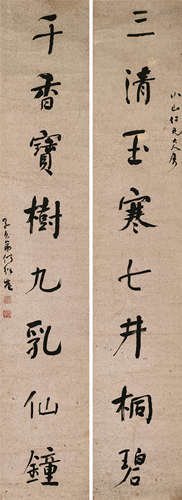 三清玉寒七井桐碧
小山仁兄大人屬
千香寶樹九乳仙鐘
子貞弟何紹基